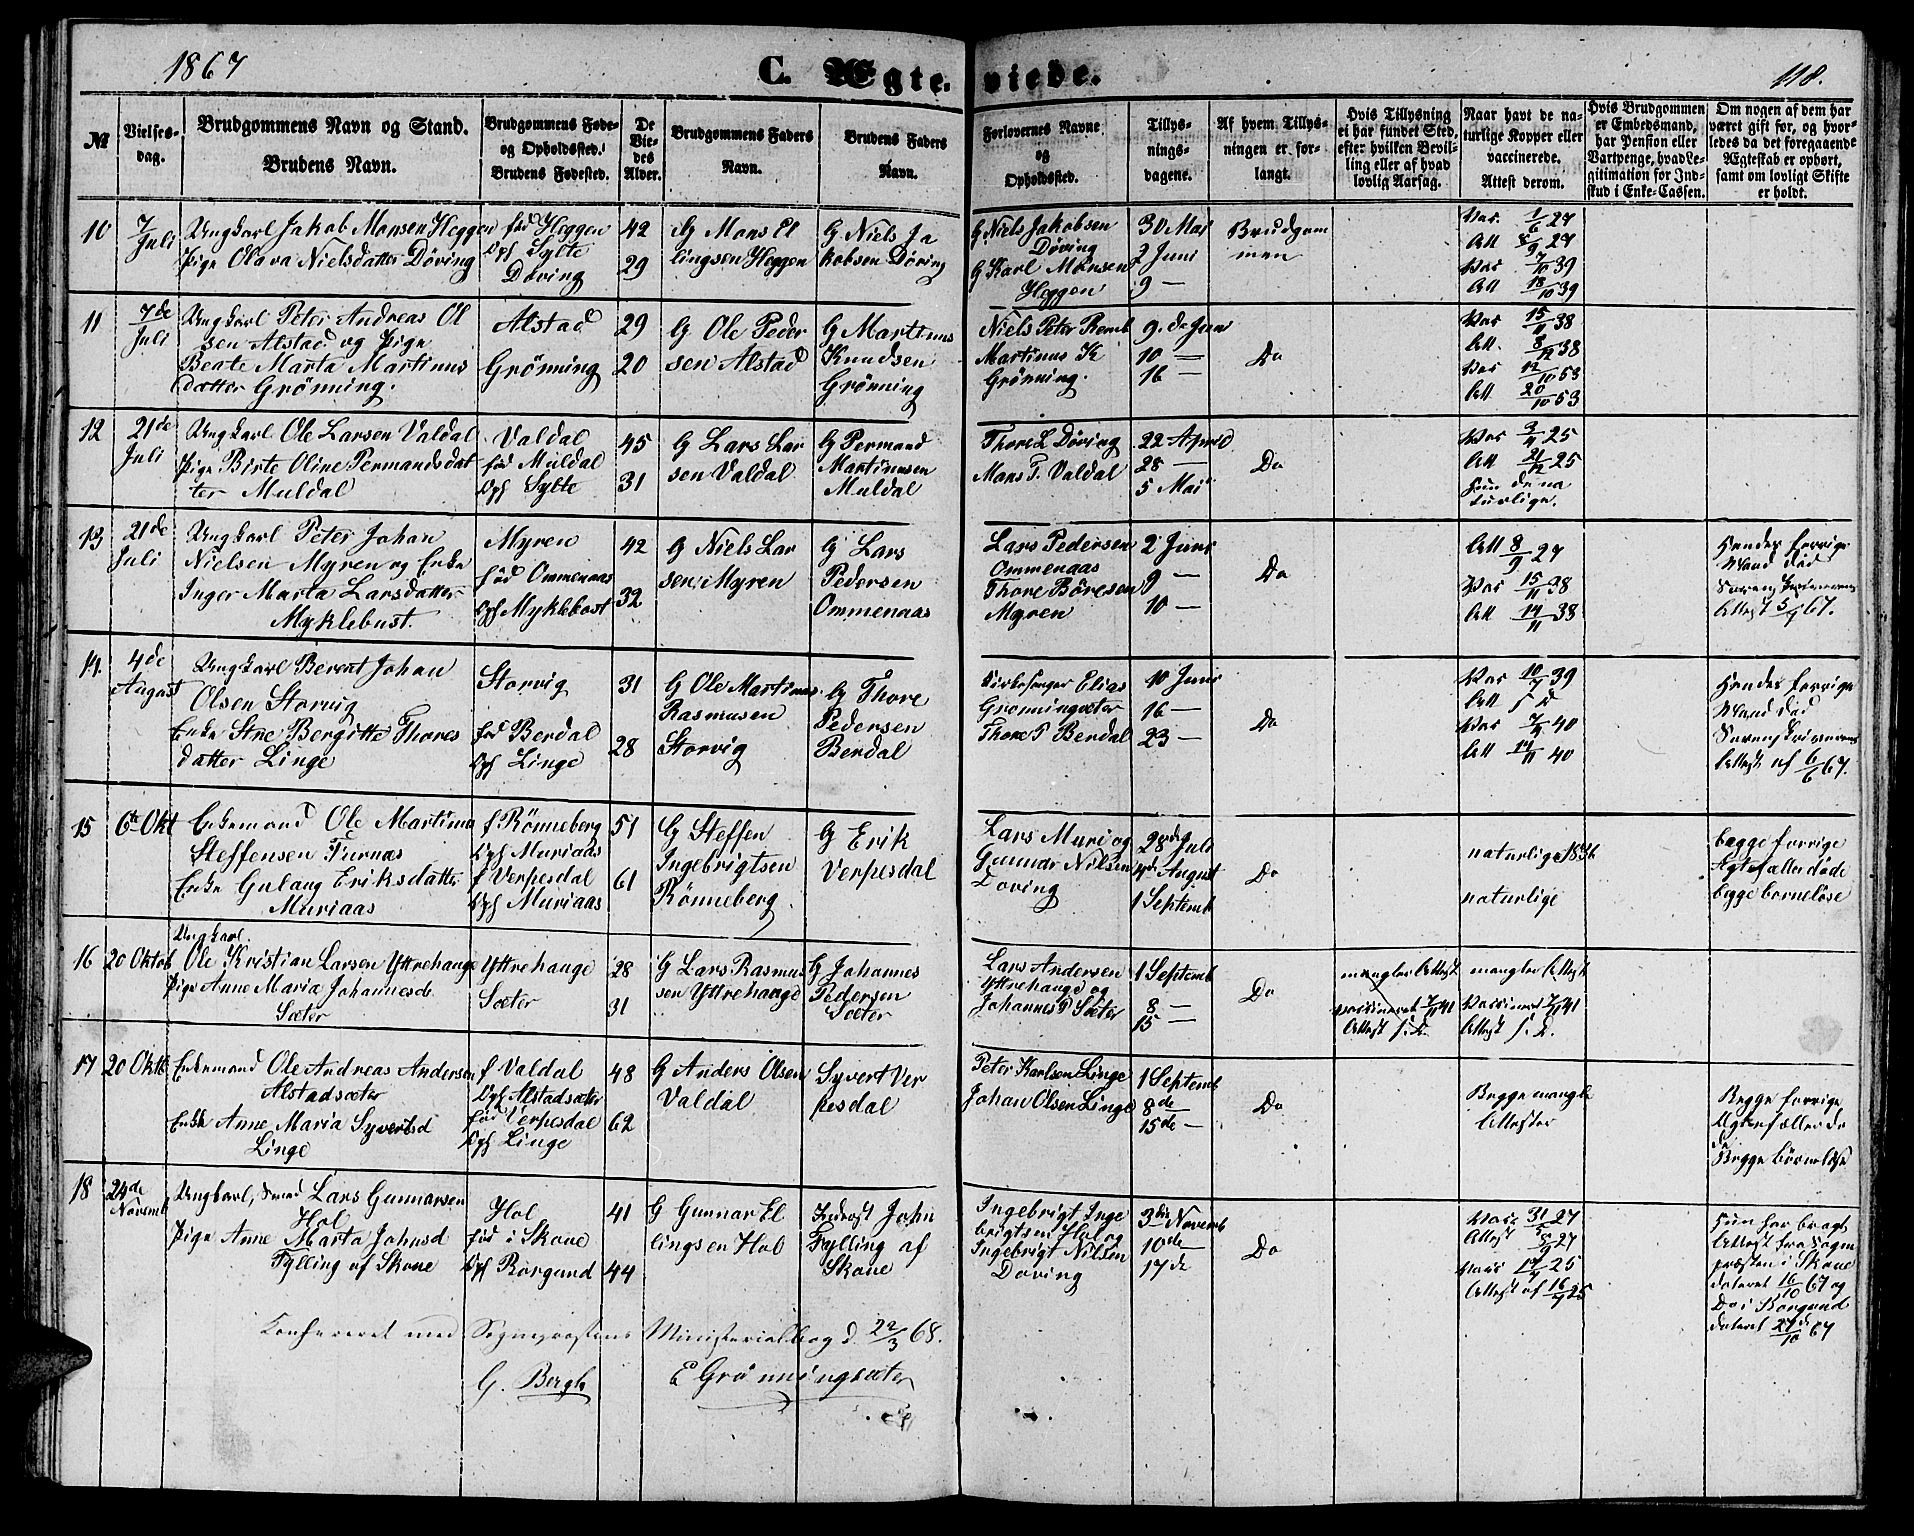 1867
C. Ægteviede.
118.
№
Vielses-
dag.
Brudgommens Navn og Stand.
Brudens Navn.
Brudgommens Føde-
og Opholdssted.
Brudens Fødested.
De
Vie-
des
Alder.
Brudgommens Faders
Navn.
Brudens Faders
Navn.
Forlovernes Navne
og
Opholdssted.
Tillys-
nings-
dagene.
Af hvem Tillys-
ningen er for-
langt.
Hvis Tillysning
ei har fundet Sted,
efter hvilken Bevil-
ling eller af hvad
lovlig Aarsag.
Naar havt de na-
turlige Kopper eller
vaccinerede.
Attest derom.
Hvis Brudgommen
er Embedsmand,
har Pension eller
Vartpenge, hvad Le-
gitimation for Ind-
skud i Enke-Cassen.
Om nogen af dem har
været gift før, og hvor-
ledes da det foregaaende
Ægteskab er ophørt,
samt om lovligt Skifte
er holdt.
10
7/Juli
Ungkarl Jakob Monsen Heggen
Pige Olava Nielsdatter Döving
fød Heggen
Opf Sylte
Döving
42
29
G Mons El
lingsen Heggen
G Niels Ja
kobsen Döving
G Niels Jakobsen
Döving
G Karl Monsen
Heggen
30 Mai
2 Juni
9 —
Brudgom
men
Vac 1/6 27
Att 8/9 27
Vac 7/10 39
Att 18/10 39
11
7de
Juli
Ungkarl Peter Andreas Ol
sen Alstad og Pige
Beate Marta Martinus
datter Grönning.
Alstad
Grönning
29
20
G Ole Peder
sen Alstad
G Martinus
Knudsen
Grönning
Niels Peter Remb
Martinus K
Grönning.
9. de Juni
10 —
16 —
Do
Vac 15/11 38
Att. 8/12 38
Vac 12/10 53
Att 20/10 53
12
21de
Juli
Ungkarl Ole Larsen Valdal
Pige Birte Oline Permandsdat
ter Muldal
Valdal
fød Muldal
Opf Sylte
45
31
G Lars Lar
sen Valdal
G Permand
Martinusen
Muldal
Thore L Döving
Mons P. Valdal
22 April
28 —
5 Mai
Do
Vac 3/11 25
Att 21/12 25
Hun de na
turlige.
13
21de
Juli
Ungkarl Peter Johan
Nielsen Myren og Enke
Inger Marta Larsdatter
Myklebust.
Myren
fød Ommenaas
Opf Myklebost
42
32
G Niels Lar
sen Myren
G Lars
Pedersen
Ommenaas
Lars Pedersen
Ommenaas
Thore Böresen
Myren
2 Juni
9 —
10 —
Do
Att 8/9 27
Vac 15/11 38
Att 14/11 38
Hendes forrige
Mand död
Attest 5/7 67.
14.
4de
August
Ungkarl Berent Johan
Olsen Storvig
Enke Stine Bergitte Thores
datter Linge
Storvig
fød Berdal
Opf Linge
31
28
G Ole Martinus
Rasmusen
Storvig
G Thore
Pedersen
Berdal
Kirkesanger Elias
Grönningsæter
Thore P Berdal
10 Juni
16 —
23 —
Do
Vac 10/7 39
Att s d
Vac 7/9 40
Att 14/11 40
Hendes forrige
Mand död
Sorenskriverens
Attest af 6/6 67.
15
6te Okt
Enkemand Ole Martinus
Steffensen Furnas
Enke Gulaug Eriksdatter
Muriaas
f Rönneberg
Opf Muriaas
f Verpesdal
Opf Muriaas
51
61
G Steffen
Ingebrigtsen
Rönneberg
G Erik
Verpesdal
Lars Muri og
Gunnar Nilsen
Döving
28de Juli
4de August
1 Septemb
Do
naturlige 1836
naturlige
begge forrige
Ægtefæller döde
begge barnelöse
16
20 Oktob
Ungkarl
Ole Kristian Larsen Yttrehauge
Pige Anne Maria Johannesd.
Sæter
Yttrehauge
Sæter
28
31
G Lars Rasmus
sen Yttrehauge
G Johannes
Pedersen
Sæter
Lars Andersen
Yttrehauge og
Johannes P Sæter
1 Septemb
8 —
15 —
Do
mangler Attest
vaccineret 7/11 41
Attest s. D.
mangler Attest
Vaccineret 7/11 41
Attest s. D.
17
20 Oktb
Enkemand Ole Andreas Andersen
Alstadsæter
Enke Anne Maria Syvertsd
Linge
f Valdal
Opf Alstadsæter
fød Verpesdal
Opf Linge
48
62
G Anders Olsen
Valdal
Syvert Ver
pesdal
Peter Karlsen Linge
Johan Olsen Linge
1 Septemb
8de —
15de —
Do
Begge mangle
Attester
Begge forrige
Ægtefæller dö
de
Begge börnelöse
18
24de
Novemb
Ungkarl, Smed Lars Gunnarsen
Hol
Pige Anne Marta Johnsd
Fylling af Skoue
Hol
fød i Skoue
Opf Borgund
41
44
G Gunnar El
lingsen Hol
John
Fylling af
Skoue
Ingebrigt Inge
brigtsen Hol og
Ingebrigt Nilsen
Döving
3die Novemb
10de —
17de
Do
Vacc 31/5 27
Attest 8/9 27
Vacc 14/7 25
Attest af 16/9 25
Hun har bragt
Attest fra Sogne
præsten i Skoue
dateret 16/10 67 og
Do i Borgund
dateret 27/10 67
Konfereret med Sognepræstens Ministerialbog d. 22/3 68.
G. Bergh
E Grönningsæter